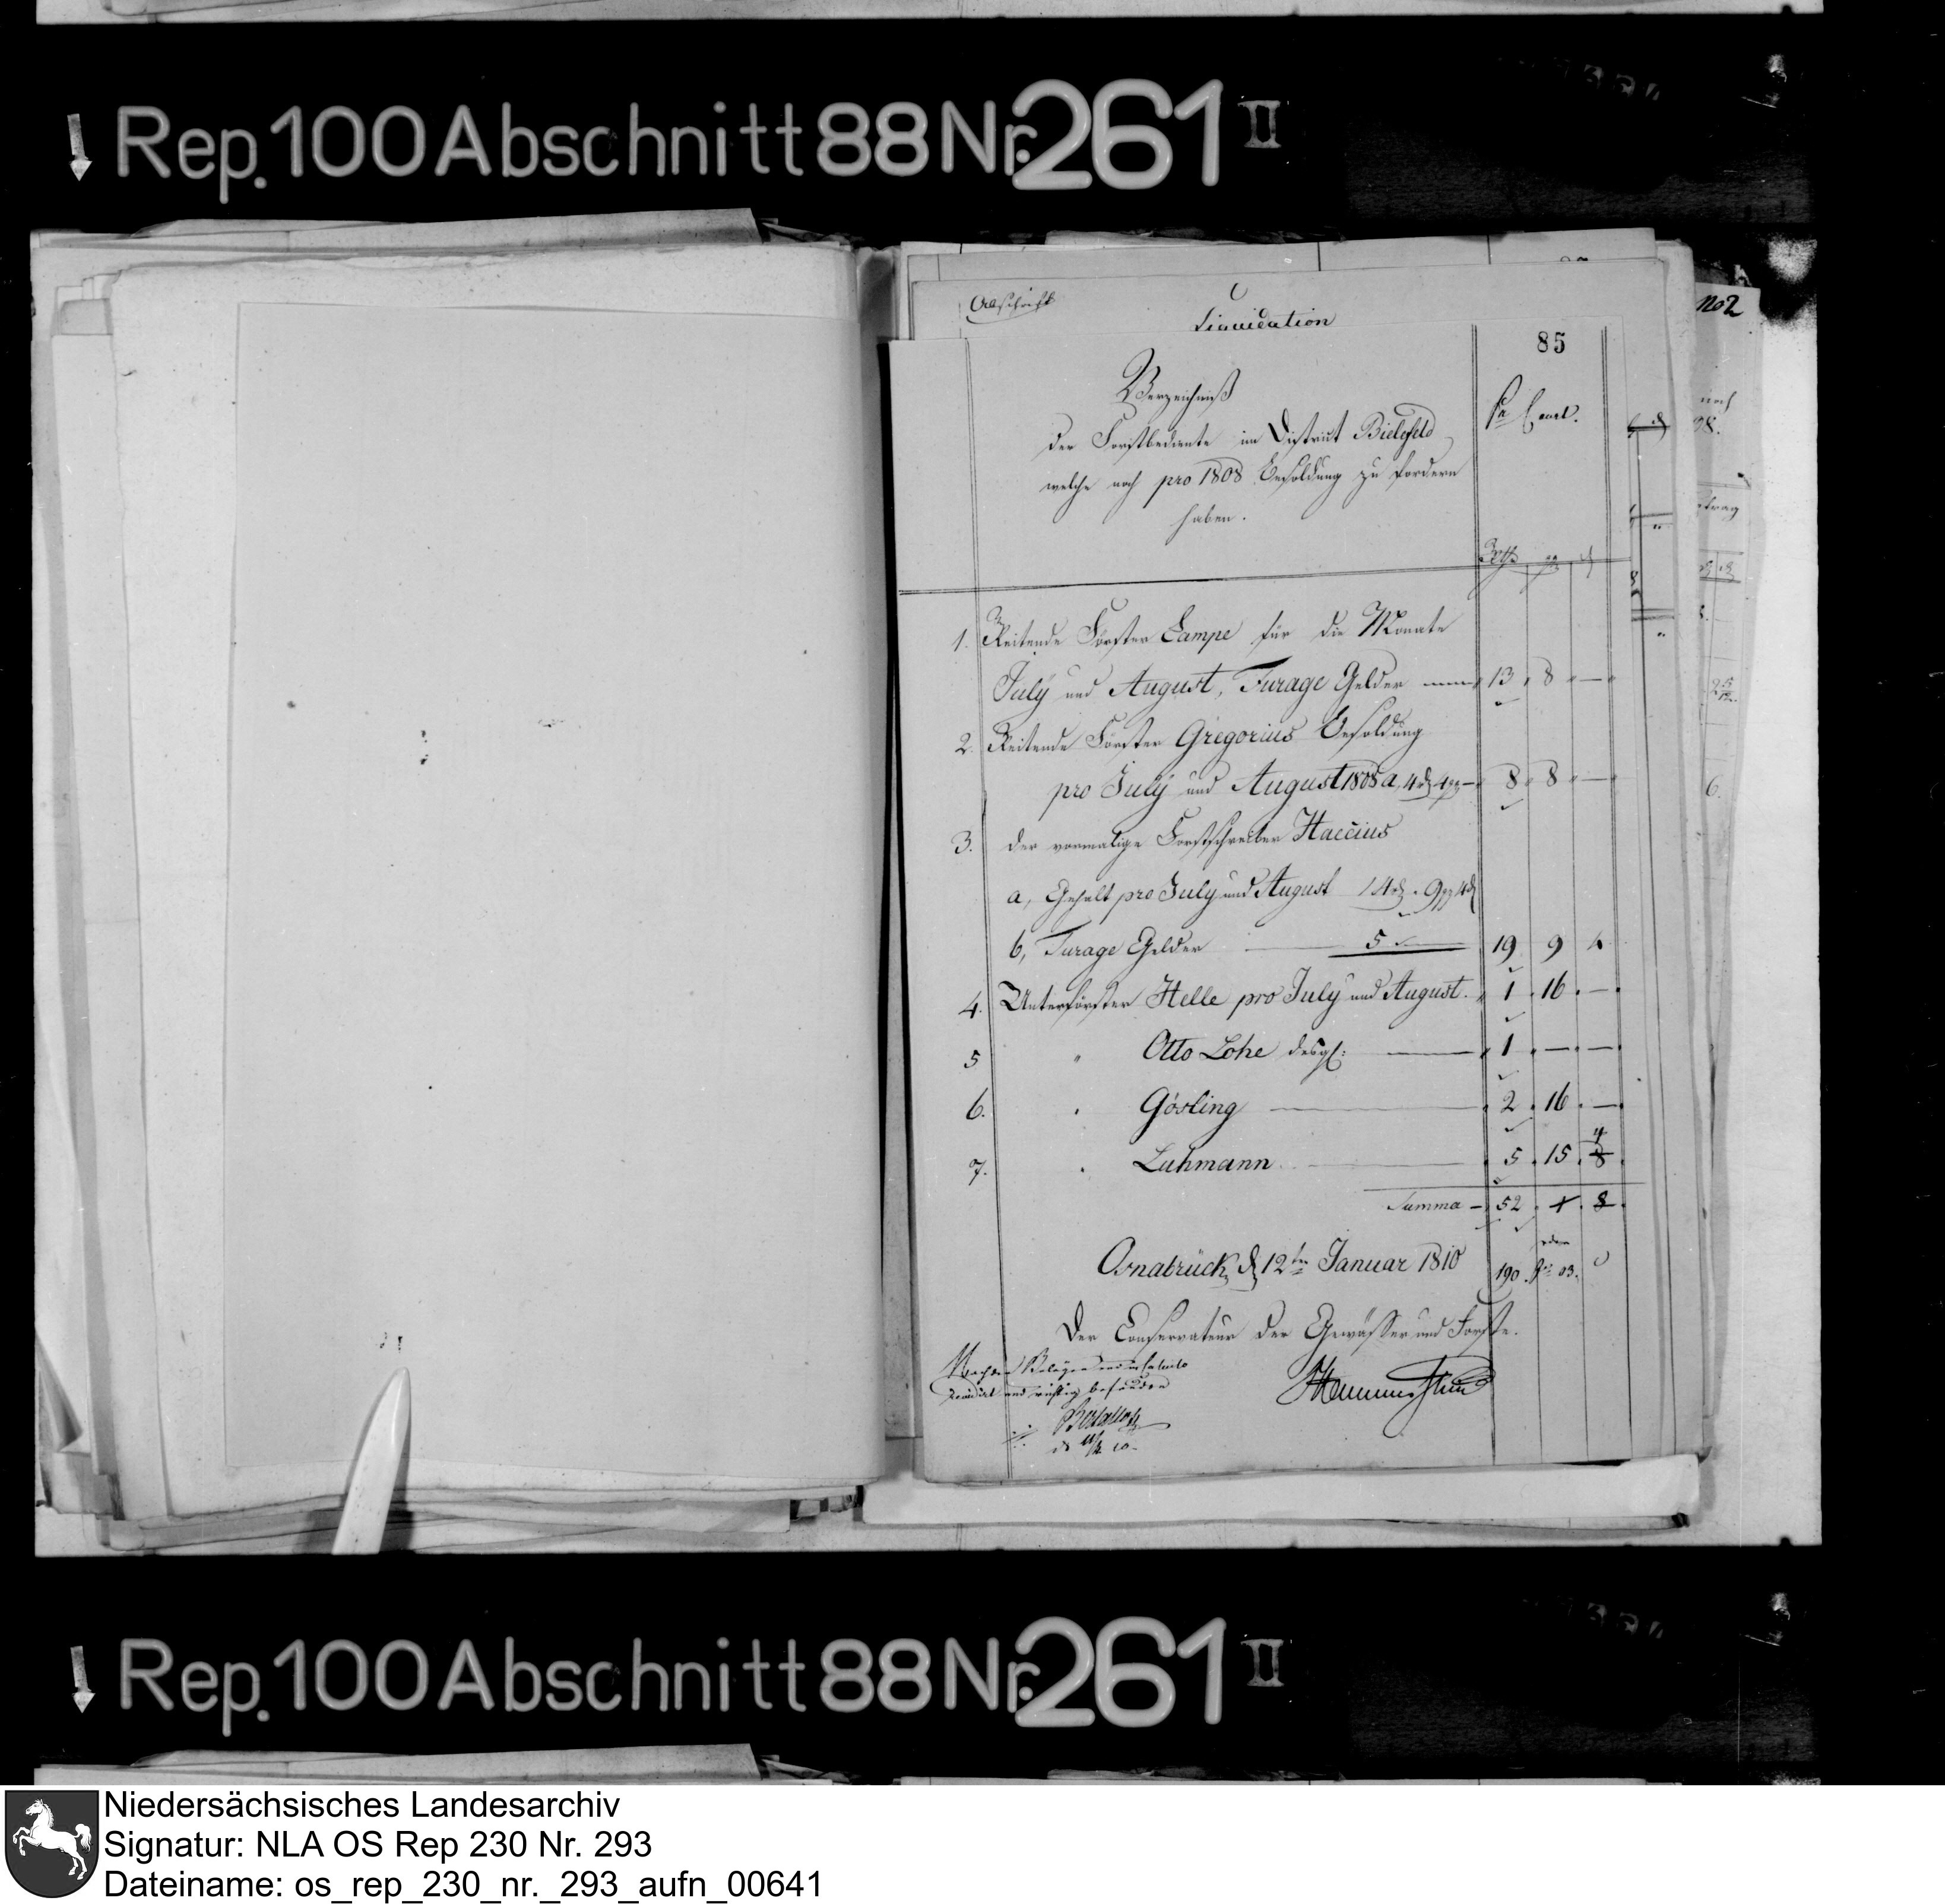 Rep. 100 Abschnitt 88 Nr. 261 II
Abschrift
Liquidation
no 2
85
Verzeichniß
der Forstbediente im District Bielefeld
Pr Cour.
welche noch pro 1808 Besoldung zu fordern
haben.
Rthlr gg ₰
1. Reitende Förster Lampe für die Monate
July und August, Furage Gelder 13 8 —
2. Reitende Förster Gregorius Besoldung
pro July und August 1808 a, 4 rh 4 gg — 8 8 —
3. der vormalige Forstschreiber Haccius
a, Gehalt pro July und August 14 rh 9 gg 4 ₰
b, Furage Gelder — 5 — 19 9 4
4. Unterförster Helle pro July und August. 1 16 —
5 " Otto Lohe desgl: — 1 — —
6. " Gösling — 2 16 —
7. " Luhmann — 5 15 4 8
Summa — 52 1 8
Osnabrück, d 12ten Januar 1810
190
Der Conservateur der Gewässer und Forste.
Nach den Belägen und in calculo
revidirt und richtig befunden
Niedersächsisches Landesarchiv
Signatur: NLA OS Rep 230 Nr. 293
Dateiname: os_rep_230_nr._293_aufn_00641
Rep. 100 Abschnitt 88 Nr. 261 II